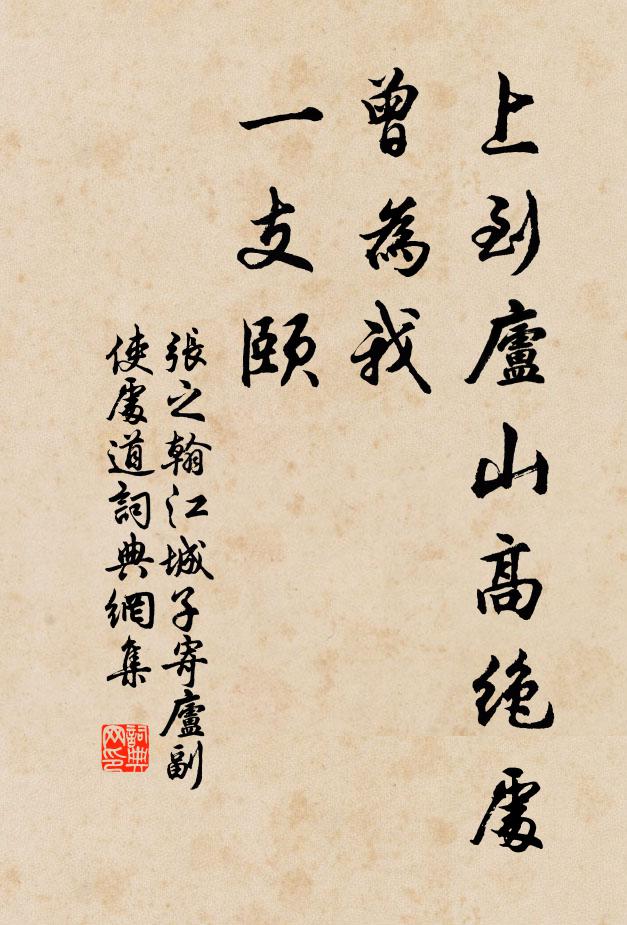 上到廬山高絶處
曾為我
一支頤
張之翰江城子寄廬副
使處道詞典網集
詞典网印